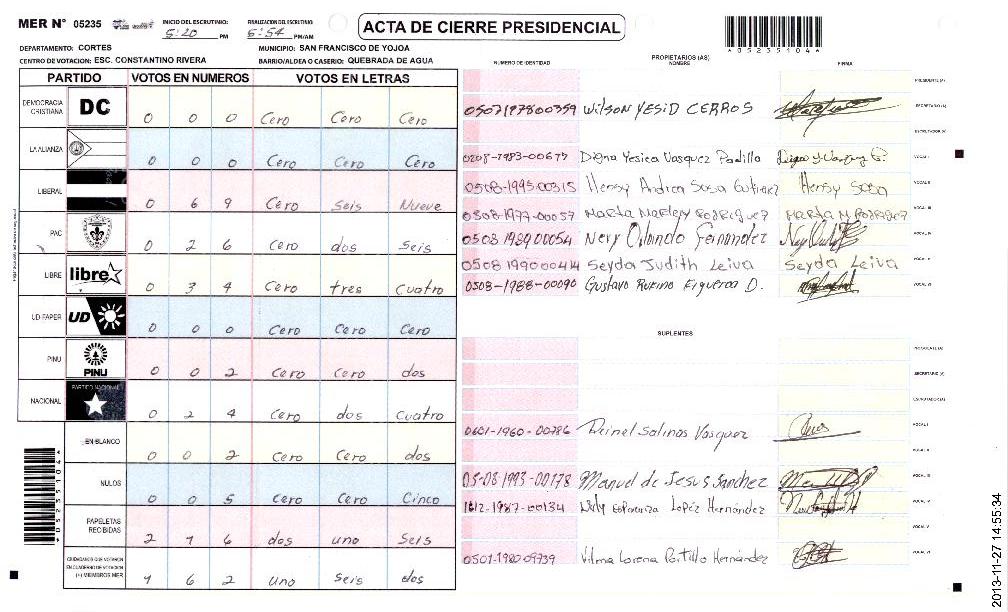 MER N° 05235 INICIO DEL ESCRUTINIO 5:20 PM FINALIZACION DEL ESCRUTINIO 5:54 PM/AM
ACTA DE CIERRE PRESIDENCIAL
*05235104*
DEPARTAMENTO: CORTES MUNICIPIO: SAN FRANCISCO DE YOJOA
CENTRO DE VOTACION: ESC. CONSTANTINO RIVERA BARRIO/ALDEA O CASERIO: QUEBRADA DE AGUA
PARTIDO VOTOS EN NUMEROS VOTOS EN LETRAS
DEMOCRACIA CRISTIANA DC 0 0 0 Cero Cero Cero
LA ALIANZA 0 0 0 Cero Cero Cero
LIBERAL 0 6 9 Cero seis Nueve
PAC 0 2 6 cero dos seis
LIBRE libre 0 3 4 Cero tres cuatro
UD-FAPER UD 0 0 0 Cero Cero Cero
PINU PINU 0 0 2 Cero Cero dos
NACIONAL PARTIDO NACIONAL 0 2 4 Cero dos Cuatro
EN BLANCO 0 0 2 Cero Cero dos
NULOS 0 0 5 Cero Cero Cinco
PAPELETAS RECIBIDAS 2 1 6 dos uno Seis
CIUDADANOS QUE VOTARON EN CUADERNO DE VOTACION (+) MIEMBROS MER 1 6 2 uno seis dos
*05235104*
NUMERO DE IDENTIDAD PROPIETARIOS (AS) NOMBRE FIRMA
PRESIDENTE (A)
0507197800359 Wilson YESID CERROS SECRETARIO (A)
ESCRUTADOR (A)
0208-1983-00677 Digna Yesica Vasquez Padilla VOCAL I
0508-1995-00315 Hensy Andrea Sosa Gutierrez Hensy Sosa VOCAL II
0508-1977-00057 Marta Marleny Rodriguez Marta M Rodriguez VOCAL III
0508 1989 00054 Nery Orlando Fernandez VOCAL IV
0508 199000414 Seyda Judith Leiva Seyda Leiva VOCAL V
0508-1988-00090 Gustavo Rufino Figueroa D. VOCAL VI
SUPLENTES
PRESIDENTE (A)
SECRETARIO (A)
ESCRUTADOR (A)
0601-1960-00786 Reinel Salinas Vasquez VOCAL I
VOCAL II
05-08-1993-00178 Manuel de Jesus Sanchez VOCAL III
1612-1987-00134 Nely Esperanza Lopez Hernandez VOCAL IV
VOCAL V
0501-1980-09739 Vilma Lorena Portillo Hernández VOCAL VI
2013-11-27 14:55:34